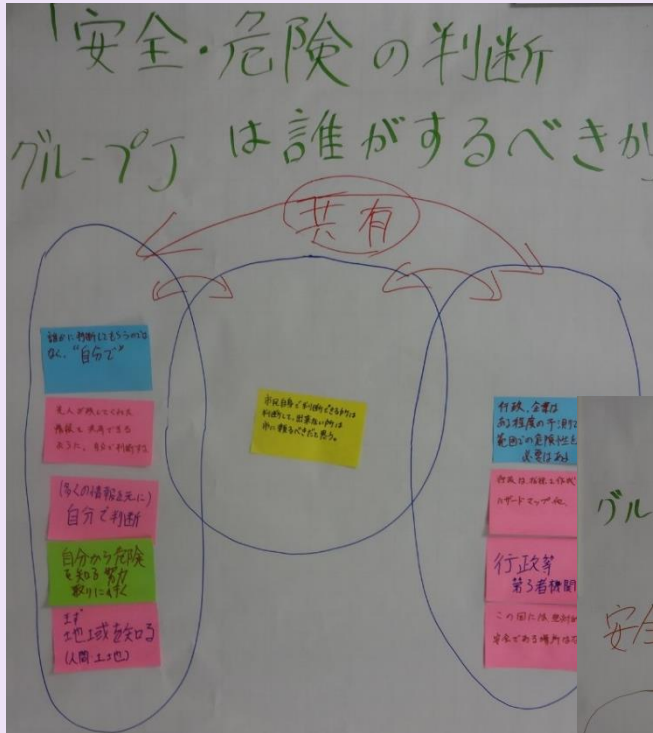 「安全・危険の判断
グループJ は誰がするべきか」
共有
誰かに判断してもらうのでは
なく、"自分で"
先人が残してくれた
ように、自分で判断する
(多くの情報を元に)
自分で判断
自分から危険
を知る努力
取りに行く
まず
地域を知る
(人間・土地)
市民自身で判断できる所は
判断して、出来ない所は
市に頼るべきだと思う。
行政、企業は
ある程度の予測
範囲での危険性
必要はある
行政は、指標を作成
ハザードマップ他、
行政等
第3者機関
この国には絶対
安全である場所は
グル
安全